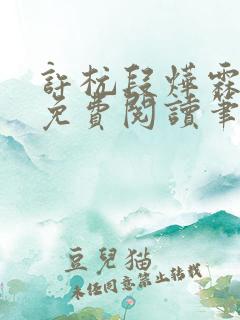 許杭段燁霖
免費閱讀筆
豆兒猫
未经同意禁止转载